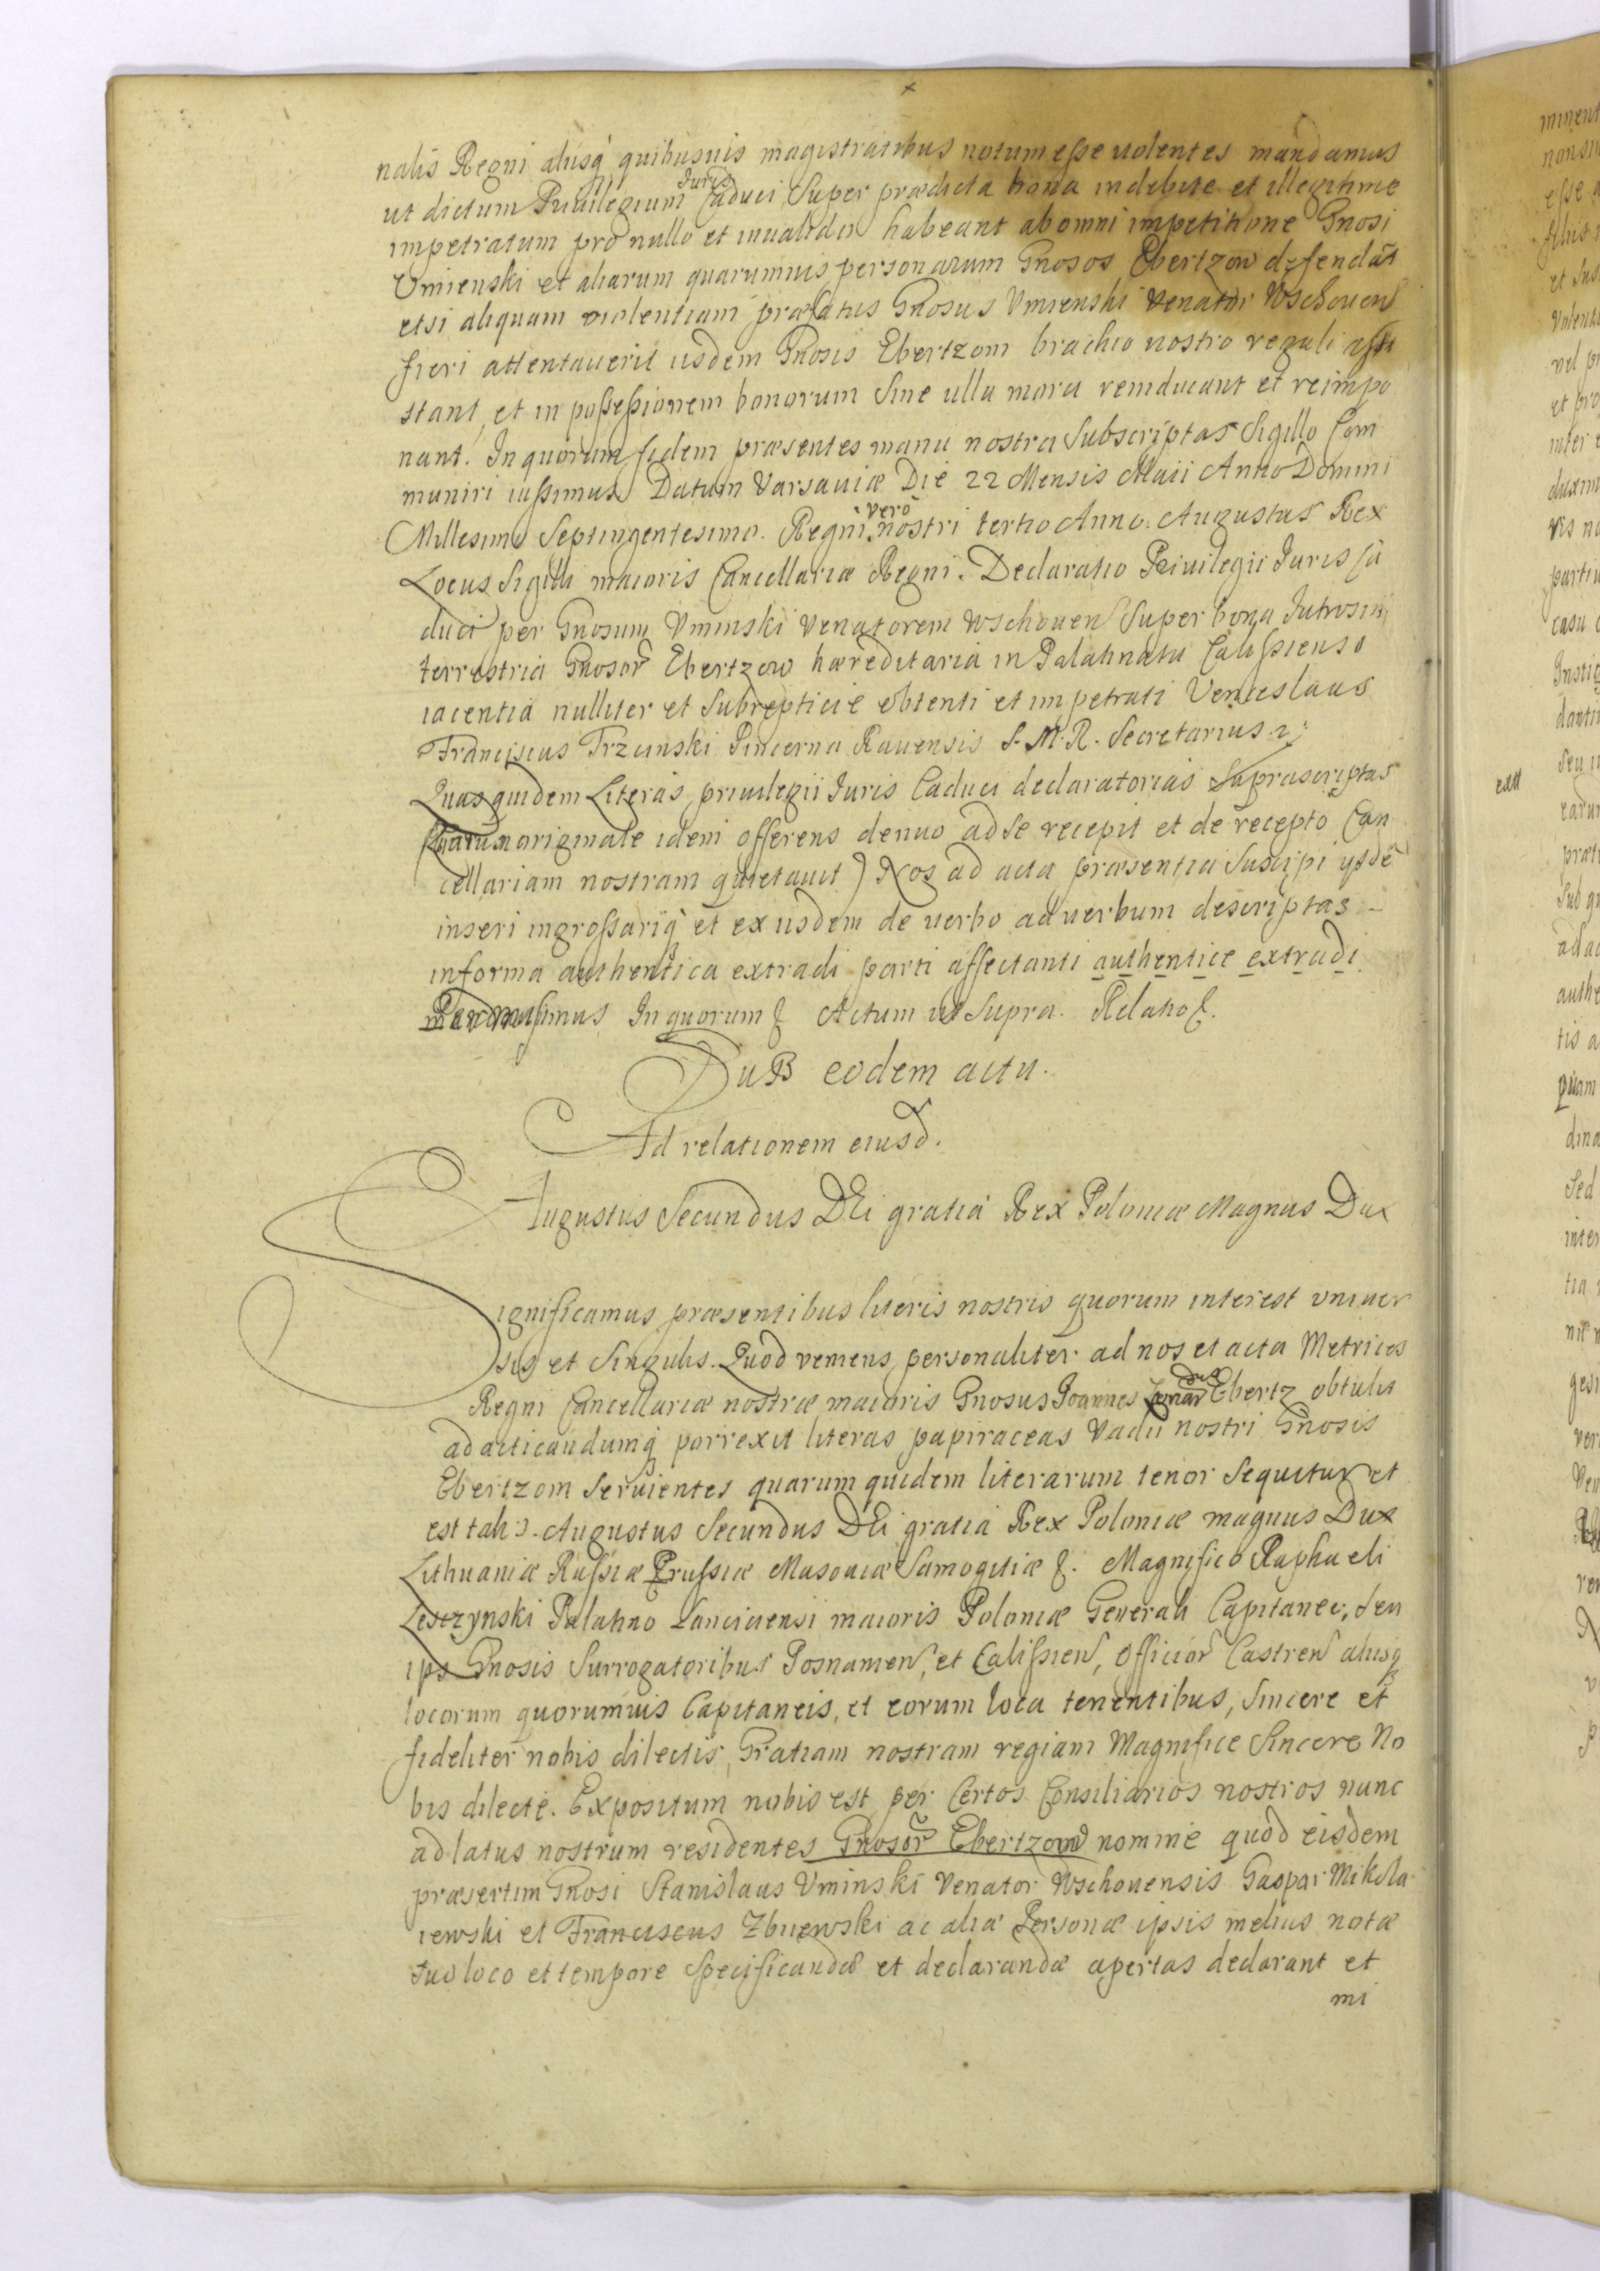 nalis Regni alijsq̃ quibusuis magistratibus notum esse uolentes mandamus
ut dictum Priuilegium Juris Caduci Super prædicta bona indebite et illegitime
impetratum pro nullo et inualido habeant ab omni impetitione Gnosi
Umienski et aliarum quarumuis personarum Gnosos Ebertzow defendãt
etsi aliquam violentiam præfatus Gnosus Vmienski Venator Wschouens
fieri attentauerit iisdem Gnosis Ebertzom brachio nostro regali assi
stant, et in possessionem bonorum Sine ulla mora reinducant et reimpo
nant. In quorum fidem præsentes manu nostra Subscriptas Sigillo Com
muniri iussimus Datum Varsauiæ Die 22 Mensis Maii Anno Domini
Millesimo Septingentesimo. Regni vero nostri tertio Anno. Augustus Rex
Locus Sigilli maioris Cancellariæ Regni. Declaratio Priuilegii Juris Ca
duci per Gnosum Vminski Venatorem Wschouens Super bona Jutrosin
terrestria Gnosor̃ Ebertzow hæreditaria in Palatinatu Calissiensi
iacentia nulliter et Subrepticie obtenti et impetrati Venceslaus
Franciscus Trzcinski Pincerna Rauensis S. M. R. Secretarius
Quas quidem Literas priuilegii Juris Caduci declaratorias Suprascriptas
originale idem offerens denuo ad Se recepit et de recepto Can
cellariam nostram quietauit) Nos ad acta præsentia Suscipi ijsdẽ
inseri ingrossariq̃ et ex iisdem de uerbo ad uerbum descriptas
in forma authentica extradi parti affectanti authentice extradi
In quorum & Actum ut Supra. Relatio &.
SuB eodem actu.
Ad relationem eiusd.
Augustus Secundus DEi gratia Rex Poloniæ Magnus Dux
Significamus præsentibus literis nostris quorum interest vniuer
sis et Singulis. Quod veniens personaliter ad nos et acta Metrices
Regni Cancellariæ nostræ maioris Gnosus Joannes Ebertz obtulit
ad acticandumq̃ porrexit literas papiraceas Vadii nostri Gnosis
Ebertzom Seruientes quarum quidem literarum tenor Sequitur et
est talis. Augustus Secundus DEi gratia Rex Poloniæ magnus Dux
Lithuaniæ Russiæ Prussiæ Masouiæ Samogitiæ &. Magnifico Raphaeli
Leszczynski Palatino Lanciciensi maioris Poloniæ Generali Capitaneo, Seu
ips Gnosis Surrogatoribus Posnanien, et Calissien, Officior̃ Castren alijsq̃
locorum quorumuis Capitaneis, et eorum loca tenentibus, Sincere et
fideliter nobis dilectis, Gratiam nostram regiam Magnifice Sincere No
bis dilecte. Expositum nobis est per Certos Consiliarios nostros nunc
ad latus nostrum residentes Gnosor̃ Ebertzow nomine quod eisdem
præsertim Gnosi Stanislaus Vminski Venator Wschouensis Gaspar Mikola
iewski et Franciscus Zbiiewski ac aliæ Personæ ipsis melius notæ
Suo loco et tempore Specificandæ et declarandæ apertas declarant et
mi